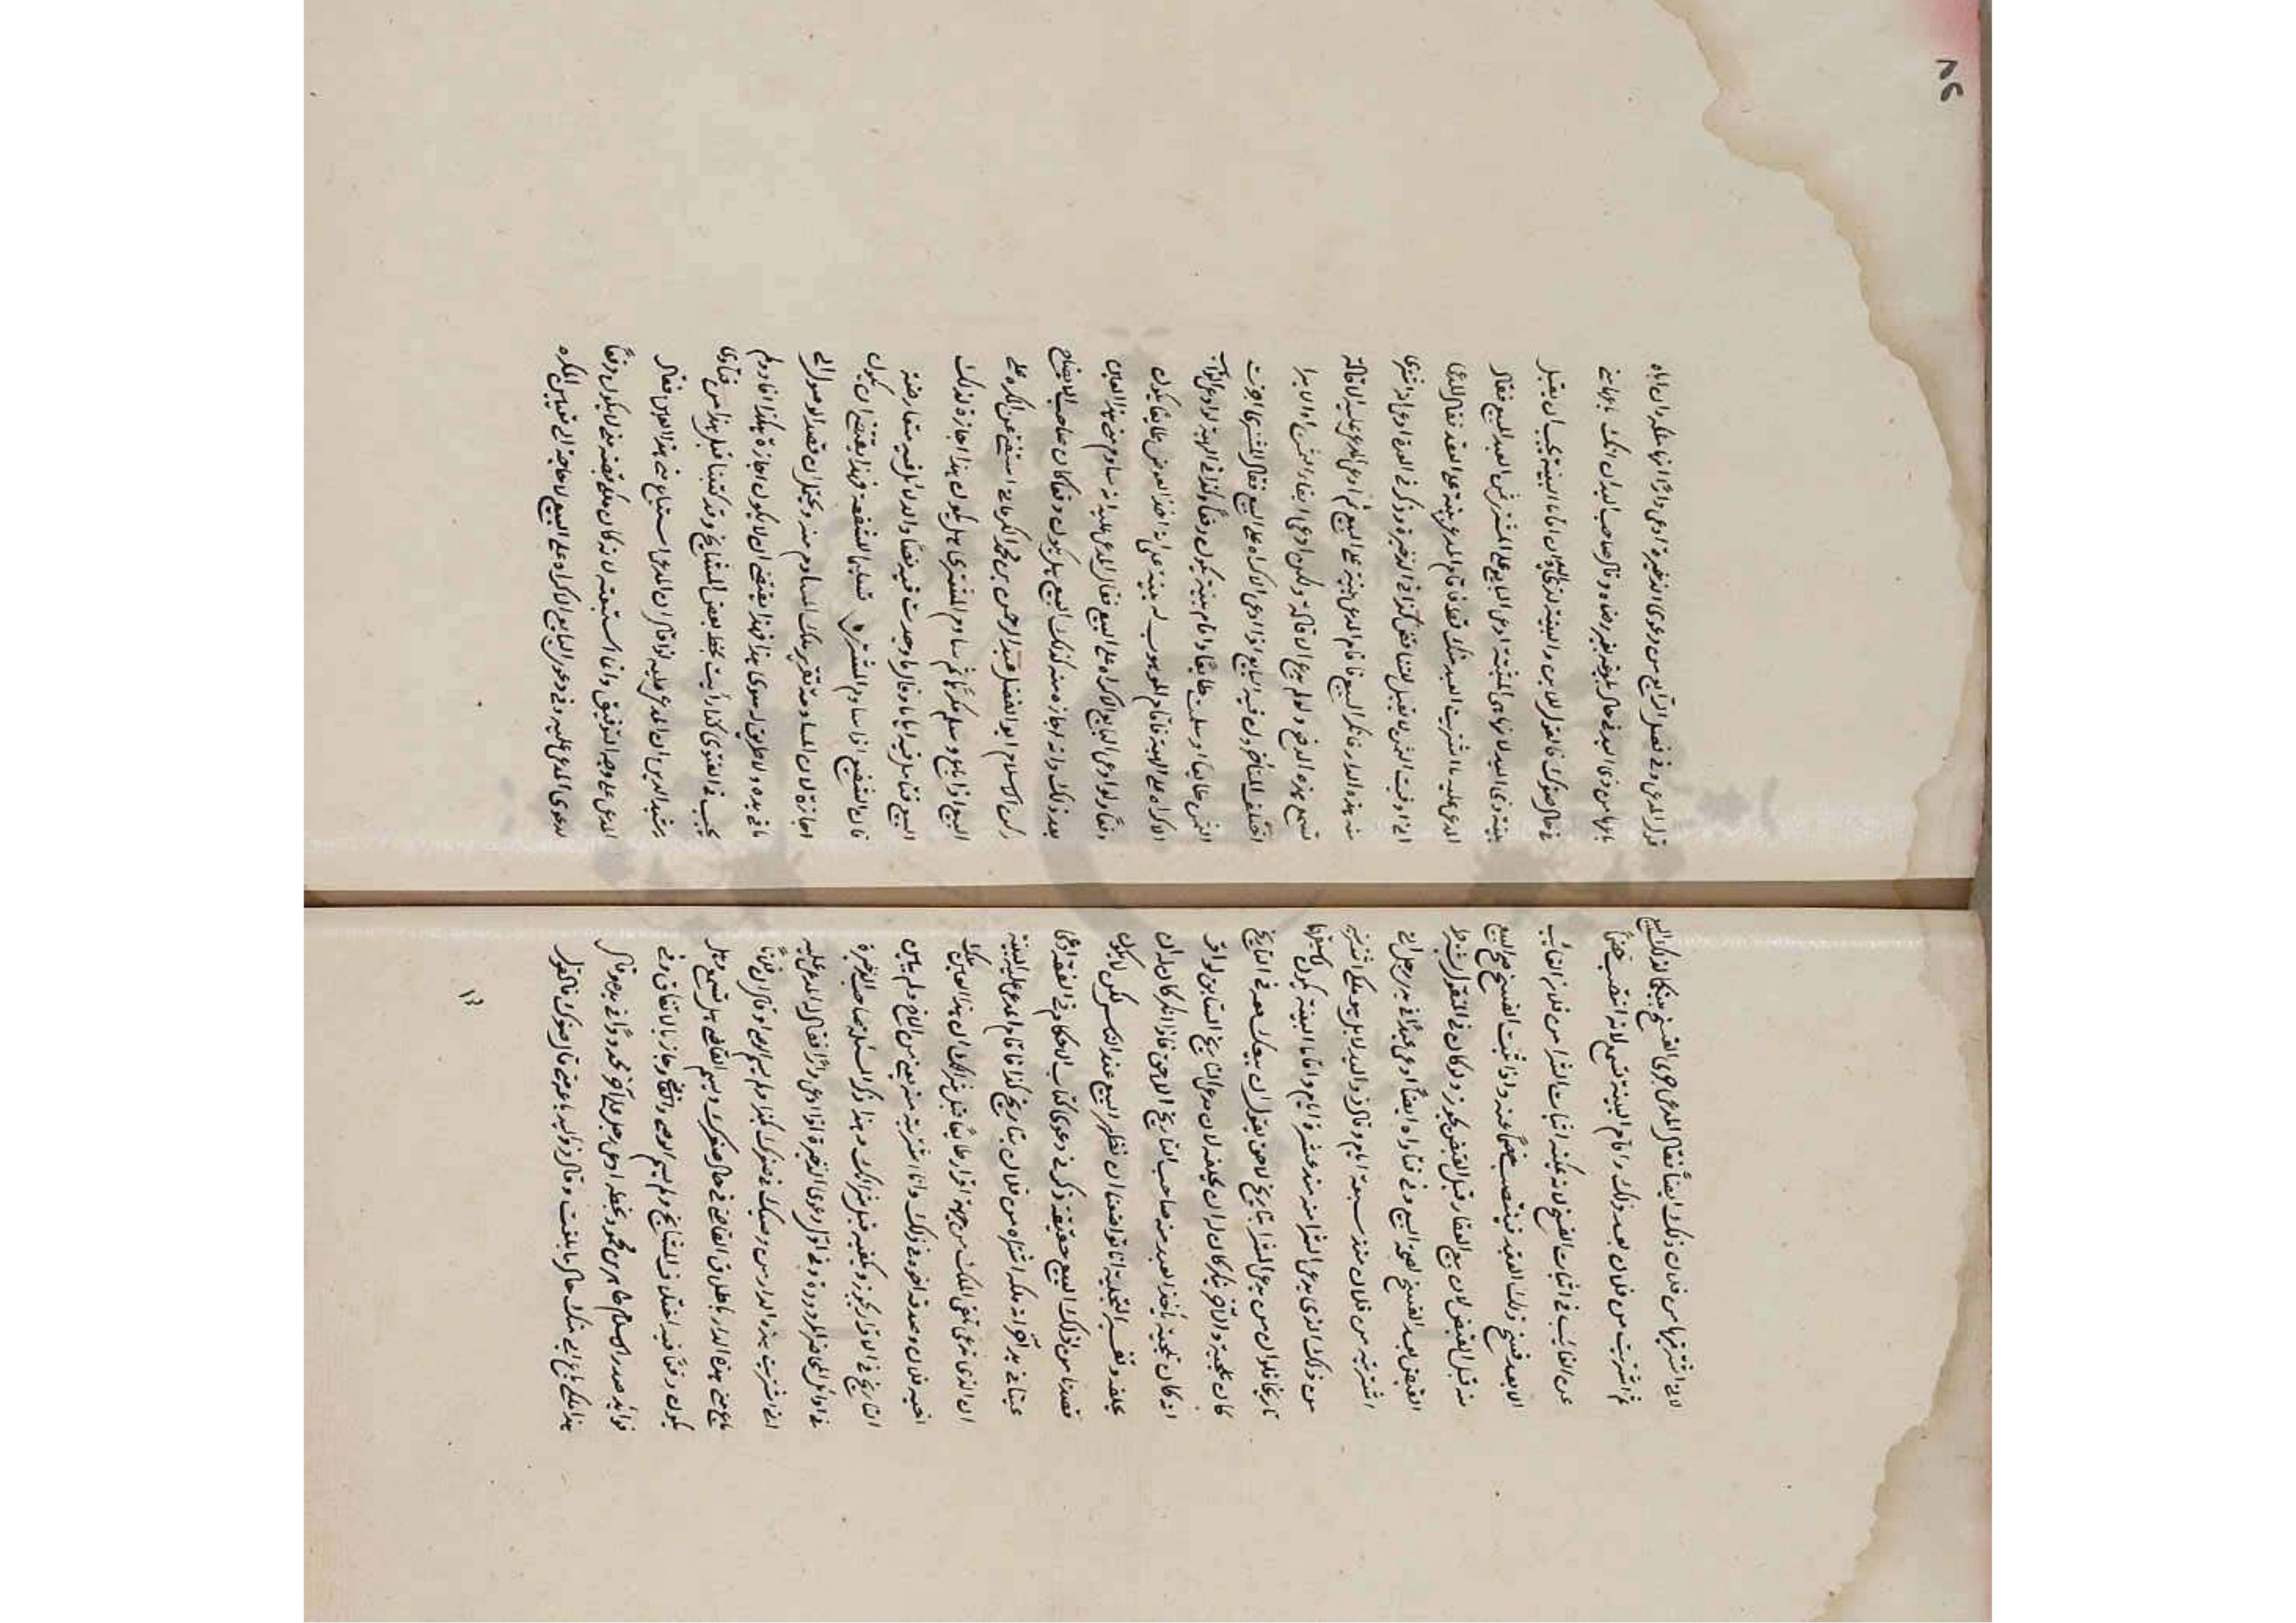 لاني اشتريتها من فلان ذلك ايضاً فقال المدعي جرى الفسخ بينكما لذلك البيع
ثم اشتريت من فلان بعد ذلك واقام البينة تسمع لانه انتصب خصماً
عن الغائب في اثبات الفسخ لانه لا يمكنه اثبات الشرا من فلان الغائب
الا بعد فسخ ذلك العقد فينتصب خصماً عنه واذا ثبت الفسخ صح البيع
منه قبل القبض لان بيع العقار قبل القبض يجوز ولو كان في المنقول شرط
القبض بعد الفسخ لصحة البيع وفي فتاواه ايضاً ادعى عبداً في يد رجل اني
اشتريته من فلان منذ سبعة ايام وقال ذو اليد لا بل هو ملكي اشتريته
من ذلك الذي يدعي الشرا منه منذ عشرة ايام واقاما البينة يكون لاسبقهما
تاريخاً فلو ان من يدعي الشرا بتاريخ لاحق يقول ان بيعك معه في التاريخ
كان تلجية والآخر ينكر كان له ان يحلفه لان مدعي التاريخ السابق لو اقر
انه كان تلجية يأخذ العبد منه صاحب التاريخ اللاحق فاذا انكر كان له ان
يحلفه وتفسير التلجية انا تواضعنا ان نظهر البيع عند الناس لكن لا يكون
قصدنا من ذلك البيع حقيقة ذكر في دعوى كتاب الاحكام وفي العدة ادعى
عيناً في يد آخر انه ملكه اشتراه من فلان بتاريخ كذا فاقام المدعى عليه البينة
ان الذي تدعي تلقي الملك من جهته اقر طايعاً قبل شرائك ان هذا العين ملك
اخيه فلان وصدقه اخوه في ذلك وانا اشتريته منه من الاخ ولم يبين
التاريخ في الاقرار يجوز ويكفيه قبل شرائك وهذا ذكر المسئلة صاحب الذخيرة
في اوائل المحاضر المردودة وفي اول دعوى الذخيرة اذا ادعى داراً فقال له المدعى عليه
اني اشتريت هذه الدار من وصيك في صغرك بكذا ولم يسم الوصي او قال ان فلاناً
باع مني هذه الدار باطلاق القاضي في حال صغرك ولم يسم القاضي هل تسمع وهل
يكون دفعاً فيه اختلاف المشايخ ولو سمى الوصي والقاضي جاز بالاتفاق وفي
فوائد صدر الاسلام طاهر بن محمود بخطه ادعى رجل على آخر محدوداً في يده وقال
هذا ملكي باع ابي منك حال ما بلغت وقال ذو اليد باعه في حال صغرك فالقول
٨٤
قول المدعي وفي فصل الرابع من دعوى الذخيرة ادعى داراً انها ملكه ان اباه
باعها من ذي اليد في حال بلوغه بغير رضاه وقال صاحب اليد ان ابنك باعها مني
في حال صغرك فالقول للابن والبينة لذي اليد ان اقاما البينة يجب ان يقبل
بينة ذي اليد لانها هي المثبتة ادعى البايع على المشتري ثمن العبد المبيع فقال
المدعى عليه ما اشتريت العبد منك قط فاقام المدعي بينة على العقد فقال المدعى
اني اوفيت الثمن لا تقبل للتناقض كذا في الذخيرة وذكر في العدة ادعى انه اشترى
منه هذه الدار فانكر البيع فاقام المدعي بينة على البيع ثم ادعى المدعى عليه الاقالة
تسمع هذه الدفع ولو لم يدع الاقالة ولكن ادعى ايفا الثمن او الابرا
اختلف المتأخرون فيه البايع اذا ادعى الاكراه على البيع فقال المشتري اخذت
الثمن طايعاً او سلمت طايعاً واقام بينة يكون دفعاً وكذا في الهبة لو ادعى الواهب
الاكراه على الهبة فاقام الموهوب له بينة على انه اخذ العوض طايعاً يكون
دفعاً ولو ادعى البايع الاكراه على البيع فقال المدعى عليه انه ساوم مني هذا العين
بعد ذلك وانه اجازه منه لذلك البيع هل يكون دفعاً كان صاحب الايضاح
ركن الاسلام ابو الفضل عبد الرحمن بن محمد الكرماني استفتي عن المكره على
البيع اذا باع وسلم مكرهاً ثم ساوم المشتري هل يكون هذا اجازة لذلك
البيع فتأمل فيه اياماً وقال ما وجدت فيه نصاً والدلائل فيه متعارضة
فان الشفيع اذا ساوم المشتري تسليماً للشفعة فهذا يقتضي ان يكون
اجازة لان المساومة تقرير ملك المساوم منه ويحتمل ان قصد الوصول الى
ما في يده ولا طريق له سوى هذا فهذا يقتضي ان لا يكون اجازة هكذا افاد ولم
يجب في الفتوى كذا رأيت بخط بعض المشايخ وقد كتبنا قبل هذا من فتاوى
رشيد الدين ان المدعى عليه لو اقال ان المدعي استباع مني هذا العين فقال
المدعي على وجه التوفيق وانما استبعته لانه كان ملكي قبضته مني لا يكون دفعاً
لدعوى المدعى عليه وفي دعوى البايع الاكراه على البيع لا حاجة الى تعيين المكره